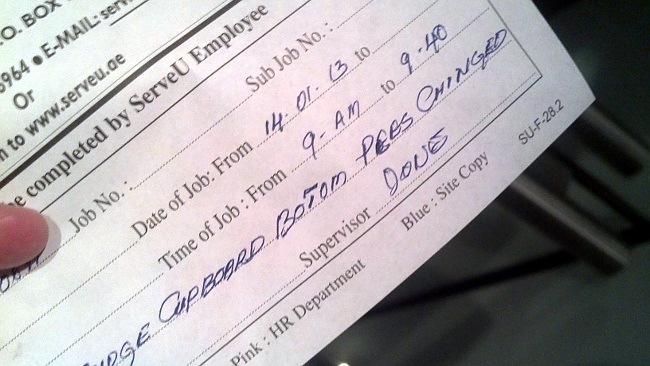 .O. BOX
3964 • E-MAIL: serv
Or
n to www.serveu.ae
be completed by ServeU Employee
Job No.: Sub Job No.:
Date of Job: From 14.01.13 to
Time of Job: From 9-AM to 9-40
CUPBOARD BOTOM PEES CHINGED
Supervisor DONE
Pink : HR Department Blue : Site Copy SU-F-28.2